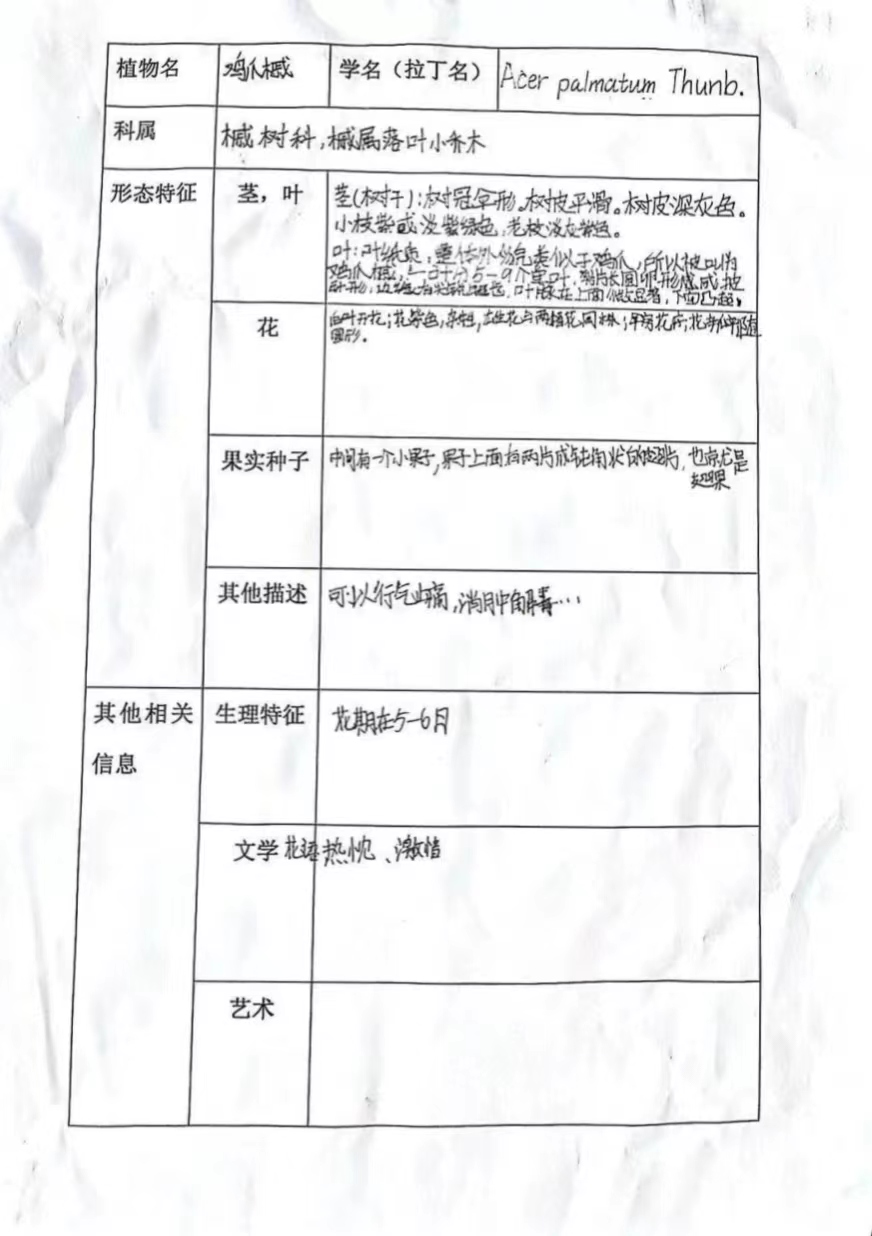 植物名 鸡爪槭 学名（拉丁名） Acer palmatum Thunb.
科属 槭树科，槭属落叶小乔木
形态特征 茎，叶 茎(树干)：树冠伞形。树皮平滑。树皮深灰色。
小枝紫或淡紫绿色，老枝淡灰紫色。
叶：叶纸质，整体外貌类似于鸡爪，所以被叫为
鸡爪槭，一叶分5-9个掌叶，裂片长圆卵形或披
针形，边缘有锯齿，叶脉在上面微显著，下面凸起。
花 后叶开花；花紫色，杂性，雄花与两性花同株；伞房花序；
圆形。
果实种子 中间有一个小果子，果子上面有两片成钝角状的翅片，也就是
翅果
其他描述 可以行气止痛，消肿解毒…
其他相关 生理特征 花期在5-6月
信息
文学 花语热忱、激情
艺术